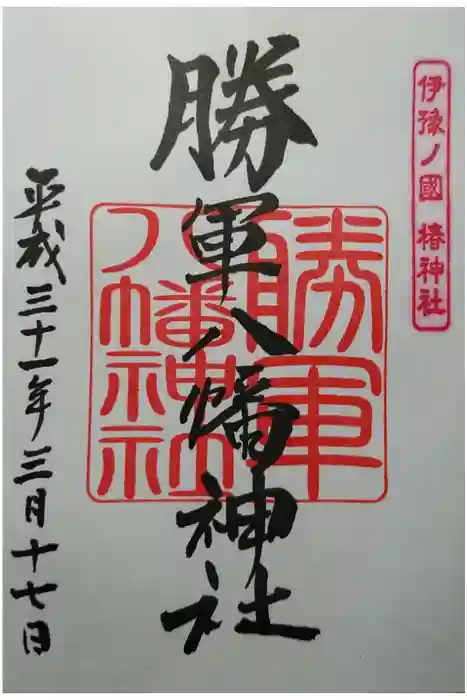 伊豫ノ國 椿神社
勝軍八幡神社
勝軍
八幡神社
平成三十一年三月十七日